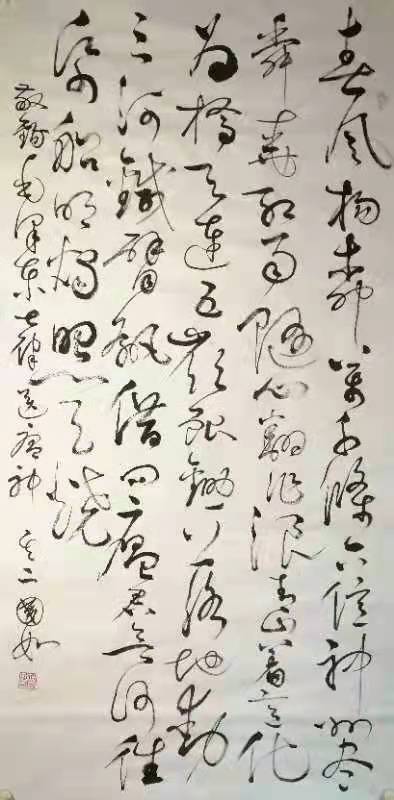 春风杨柳萬千條六億神州尽
舜尧红雨随心翻作浪青山着意化
为橋天連五嶺銀鋤落地動
三河鐵臂摇借问瘟君欲何往
纸船明烛照天燒
敬錄毛泽东七律送瘟神其二國如